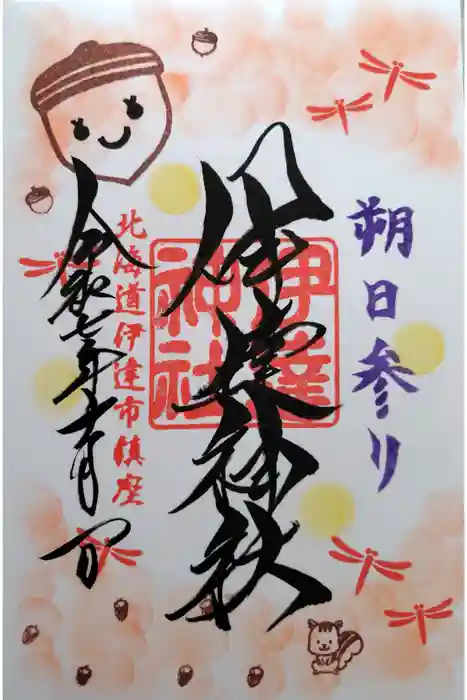 朔日参り
伊達神社
伊達神社
北海道伊達市鎮座
令和七年十月一日